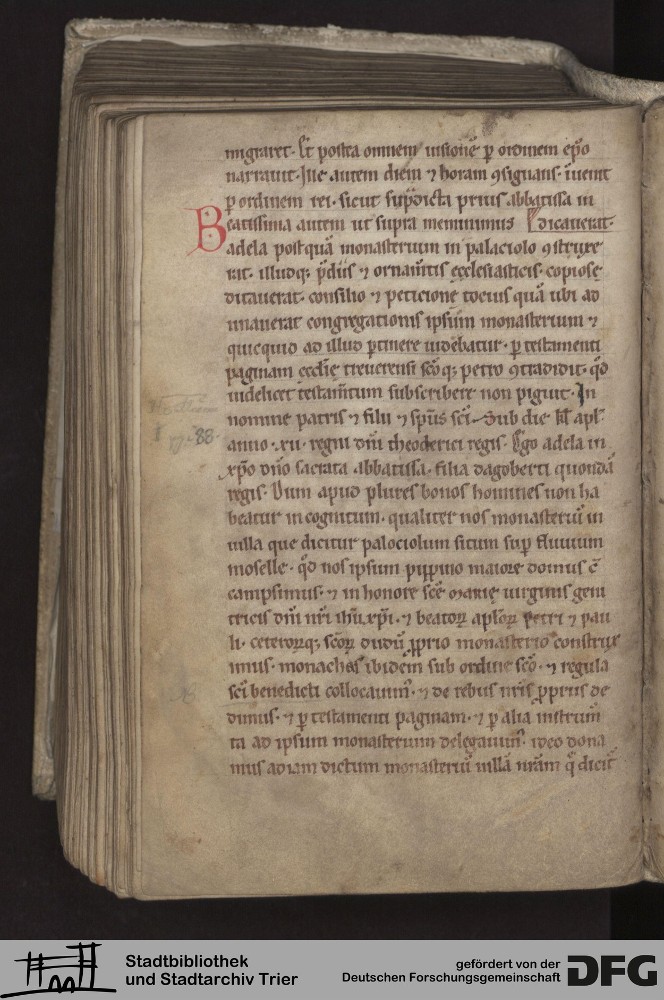 migraret. Et postea omnem uisionē ꝑ ordinem ep̄o
narrauit. Ille autem diem ⁊ horam ꝯsignans. īuenit
ꝑ ordinem rei. sicut sup̄dicta prius abbatissa in
dicauerat.
Beatissima autem ut supra meminimus
adela postquā monasterium in palaciolo ꝯstruxe
rat. illudq; p̄diis ⁊ ornam̄tis ęcclesiasticis. copiose
ditauerat. consilio ⁊ peticione tocius quā ibi ad
unauerat congregationis ipsum monasterium ⁊
quicquid ad illud ꝑtinere uidebatur. ꝑ testamenti
paginam ęcclie treuerensi sc̄oq; petro ꝯtradidit. qd̄
uidelicet testam̄tum subscribere non piguit. In
nomine patris ⁊ filii ⁊ sp̄us sc̄i. Sub die kl̄ apl.
anno .xii. regni dn̄i theoderici regis. Ego adela in
xp̄o dn̄o sacrata abbatissa. filia dagoberti quondā
regis. Dum apud plures bonos homines non ha
beatur incognitum. qualiter nos monasteriū in
uilla que dicitur palociolum situm suꝑ fluuium
moselle. qd̄ nos ipsum pippino maiore domus cō
campsimus. ⁊ in honore scē marie uirginis geni
tricis dn̄i nr̄i ih̄u xp̄i. ⁊ beatoꝝ apl̄oꝝ petri ⁊ pau
li. ceteroꝝq; sc̄oꝝ dudū ꝓprio monasterio construx
imus. monachas ibidem sub ordine sc̄o. ⁊ regula
sc̄i benedicti collocauim᷒. ⁊ de rebus nr̄is ꝓpriis de
dimus. ⁊ ꝑ testamenti paginam. ⁊ ꝑ alia instrum̄
ta ad ipsum monasterium delegauim᷒. ideo dona
mus ad iam dictum monasteriū uillā nr̄am q̄ dicit᷑
88.
Stadtbibliothek
und Stadtarchiv Trier
gefördert von der
Deutschen Forschungsgemeinschaft
DFG